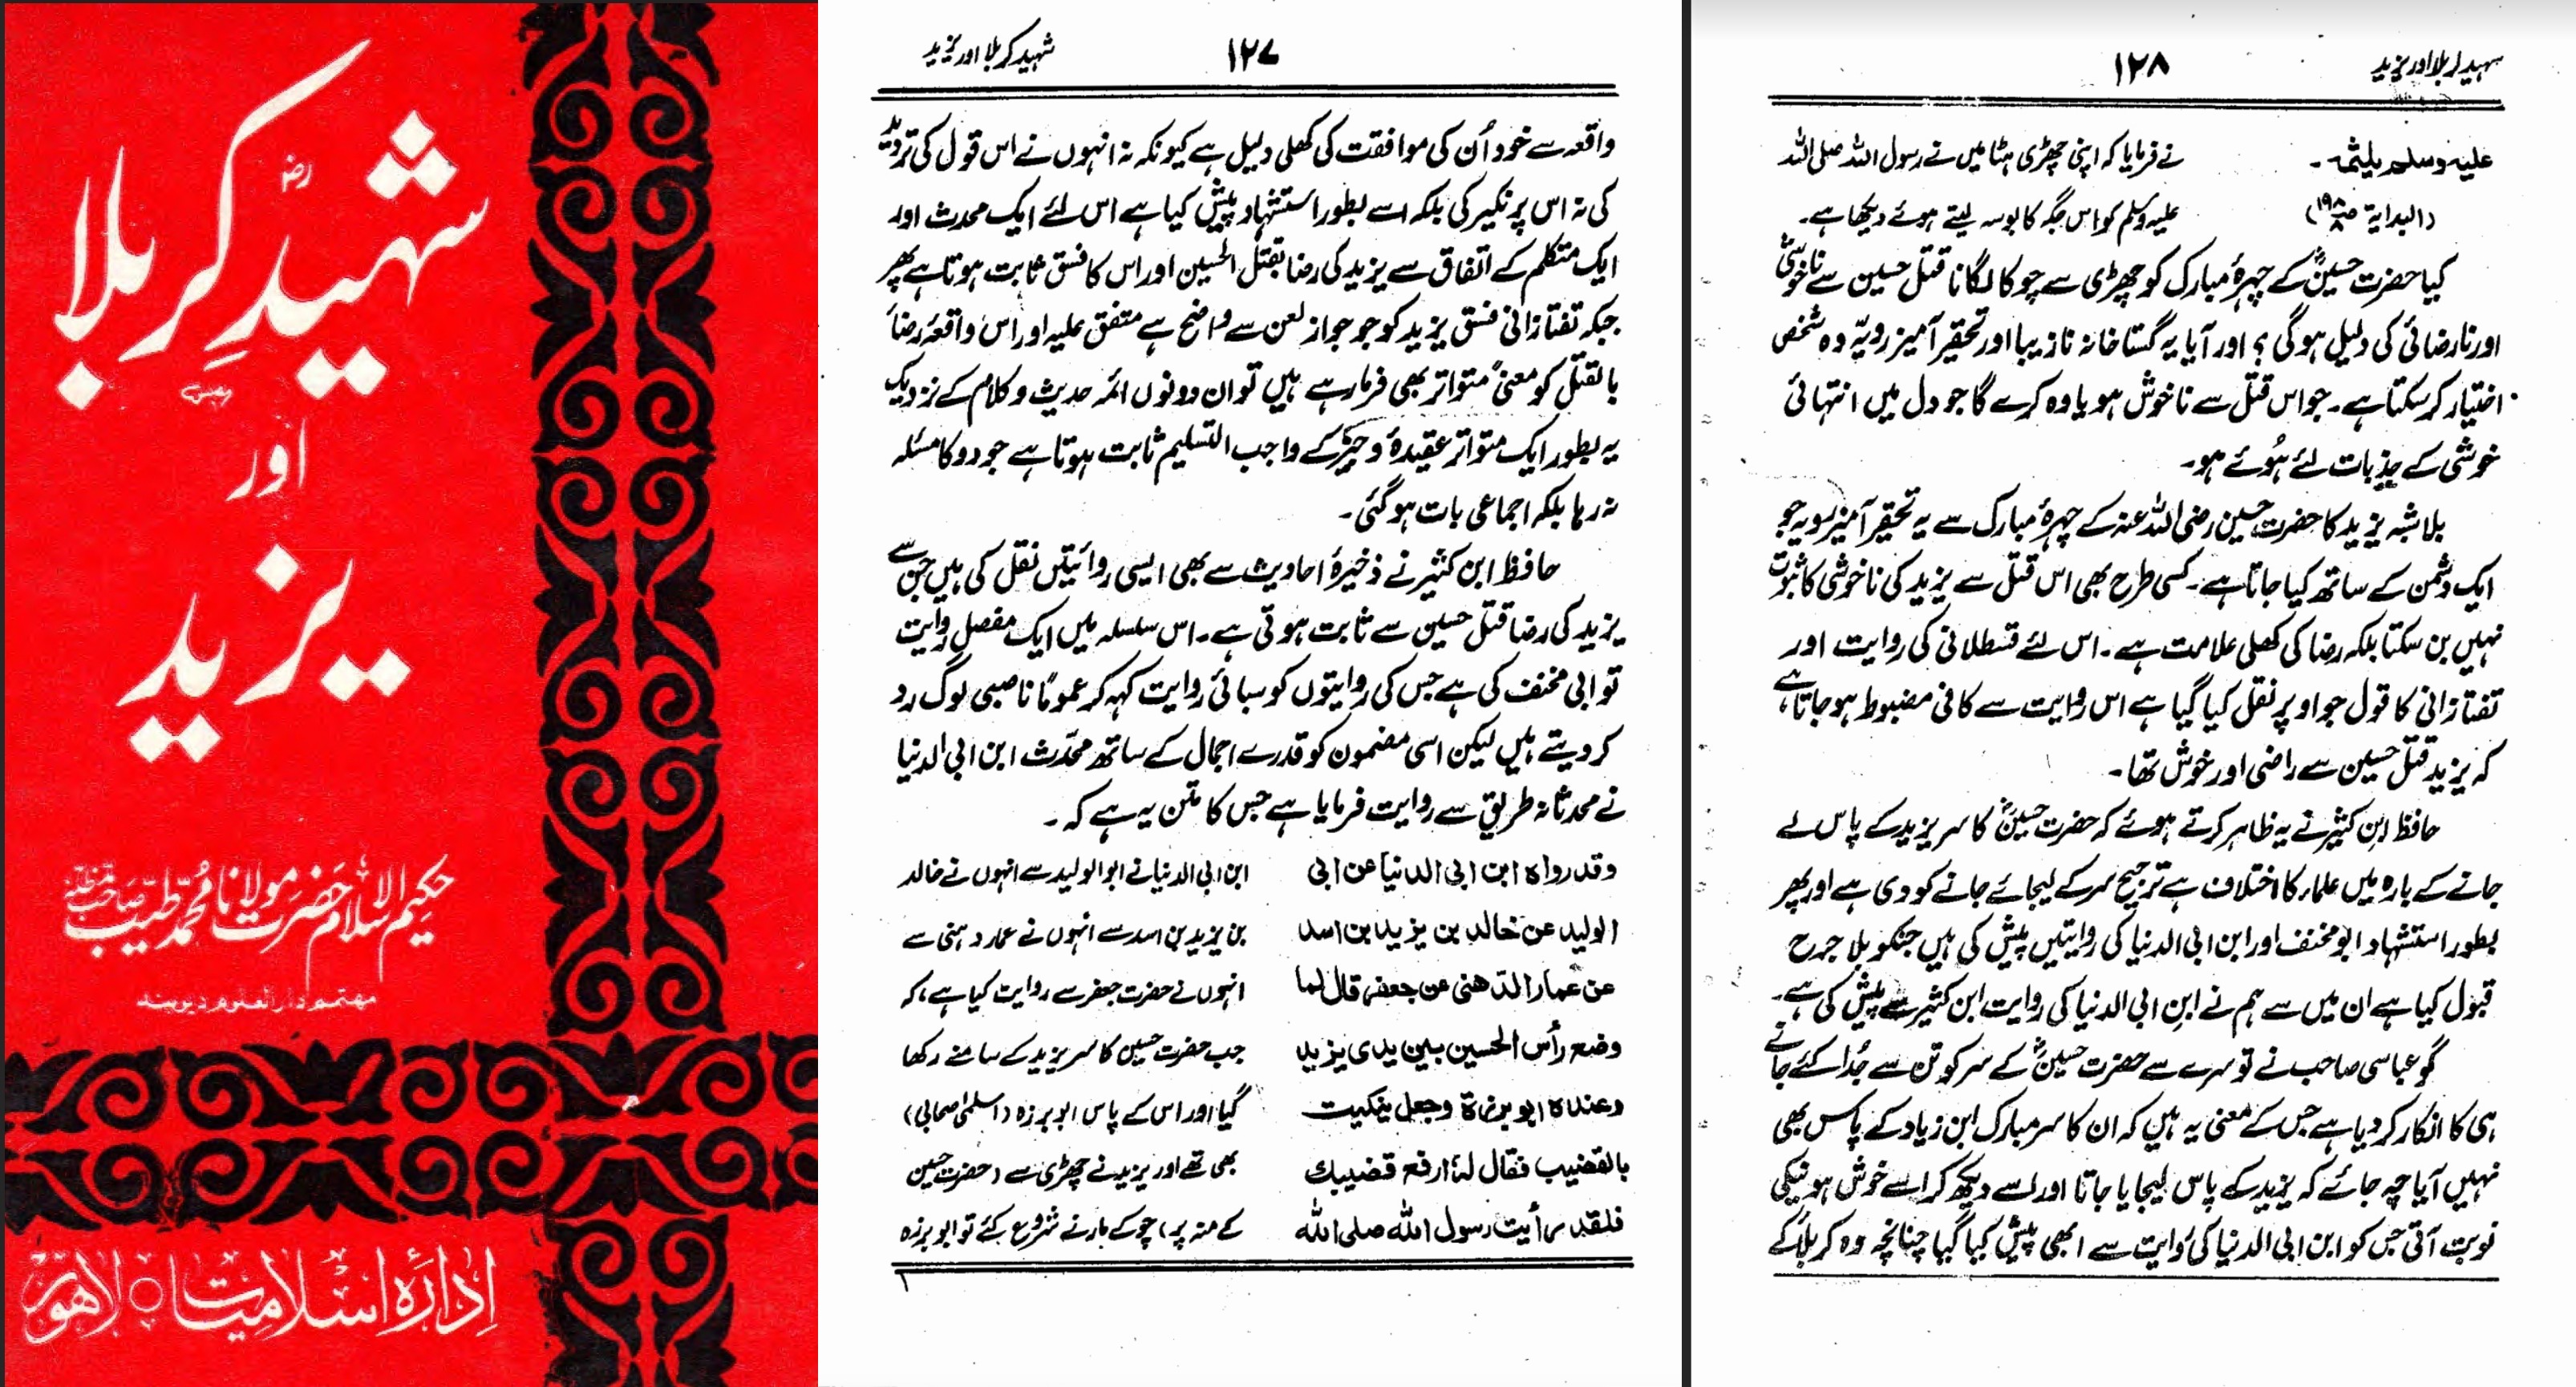 شہیدِ کربلا
رضؓ
اور
یزید
حکیم الاسلام حضرت مولانا محمد طیب صاحب مدظلہ
مہتمم دارالعلوم دیوبند
ادارہ اسلامیات ○ لاہور
شہید کربلا اور یزید
۱۲۷
واقعہ سے خود اُن کی موافقت کی کھلی دلیل ہے کیونکہ نہ انہوں نے اس قول کی تردید
کی نہ اس پر نکیر کی بلکہ اسے بطور استشہاد پیش کیا ہے اس لئے ایک محدث اور
ایک متکلم کے اتفاق سے یزید کی رضا بقتل الحسین اور اس کا فسق ثابت ہوتا ہے پھر
جبکہ تفتازانی فسق یزید کو جو جواز لعن سے واضح ہے متفق علیہ اور اس واقعۂ رضاء
بالقتل کو معنیً متواتر بھی فرما رہے ہیں تو ان دونوں ائمہ حدیث و کلام کے نزدیک
یہ بطور ایک متواتر عقیدۂ و خبر کے واجب التسلیم ثابت ہوتا ہے جو دو کا مسئلہ
نہ رہا بلکہ اجماعی بات ہو گئی۔
حافظ ابن کثیر نے ذخیرۂ احادیث سے بھی ایسی روائیتیں نقل کی ہیں جن سے
یزید کی رضا قتل حسین سے ثابت ہوتی ہے۔ اس سلسلہ میں ایک مفصل روایت
تو ابی مخنف کی ہے جس کی روایتوں کو سبائی روایت کہہ کر عموماً ناصبی لوگ رد
کر دیتے ہیں لیکن اسی مضمون کو قدرے اجمال کے ساتھ محدّث ابن ابی الدنیا
نے محدثانہ طریق سے روایت فرمایا ہے جس کا متن یہ ہے کہ۔
وقد رواہ ابن ابی الدنیا عن ابی
الولید عن خالد بن یزید بن اسد
عن عمار الدھنی عن جعفر قال لما
وضع رأس الحسین بین یدی یزید
وعندہ ابو برزۃ وجعل ینکیت
بالقضیب فقال لہٗ ارفع قضیبک
فلقد رأیت رسول اللہ صلی اللہ
ابن ابی الدنیا نے ابو الولید سے انہوں نے خالد
بن یزید بن اسد سے انہوں نے عمار دہنی سے
انہوں نے حضرت جعفر سے روایت کیا ہے، کہ
جب حضرت حسین کا سر یزید کے سامنے رکھا
گیا اور اس کے پاس ابو برزہ (اسلمی صحابی)
بھی تھے اور یزید نے چھڑی سے (حضرت حسین
کے منہ پر) چوکے مارنے شروع کئے تو ابو برزہ
۱۲۸
شہید کربلا اور یزید
علیہ وسلم یلثمہ۔
(البدایۃ ص۱۹۸)
نے فرمایا کہ اپنی چھڑی ہٹا میں نے رسول اللہ صلی اللہ
علیہ وسلم کو اس جگہ کا بوسہ لیتے ہوئے دیکھا ہے۔
کیا حضرت حسینؓ کے چہرۂ مبارک کو چھڑی سے چوکا لگانا قتل حسین سے ناخوشی
اور نارضائی کی دلیل ہوگی؟ اور آیا یہ گستاخانہ نازیبا اور تحقیر آمیز رویّہ وہ شخص
اختیار کر سکتا ہے۔ جو اس قتل سے ناخوش ہو یا وہ کرے گا جو دل میں انتہائی
خوشی کے جذبات لئے ہوئے ہو۔
بلاشبہ یزید کا حضرت حسین رضی اللہ عنہ کے چہرۂ مبارک سے یہ تحقیر آمیز رویہ جو
ایک دشمن کے ساتھ کیا جاتا ہے۔ کسی طرح بھی اس قتل سے یزید کی ناخوشی کا ثبوت
نہیں بن سکتا بلکہ رضا کی کھلی علامت ہے۔ اس لئے قسطلانی کی روایت اور
تفتازانی کا قول جو اوپر نقل کیا گیا ہے اس روایت سے کافی مضبوط ہو جاتا ہے
کہ یزید قتل حسین سے راضی اور خوش تھا۔
حافظ ابن کثیر نے یہ ظاہر کرتے ہوئے کہ حضرت حسینؓ کا سر یزید کے پاس لے
جانے کے بارہ میں علماء کا اختلاف ہے ترجیح سر کے لیجائے جانے کو دی ہے اور پھر
بطور استشہاد ابو مخنف اور ابن ابی الدنیا کی روایتیں پیش کی ہیں جنکو بلا جرح
قبول کیا ہے ان میں سے ہم نے ابن ابی الدنیا کی روایت ابن کثیر سے پیش کی ہے۔
گو عباسی صاحب نے تو سرے سے حضرت حسینؓ کے سر کو تن سے جُدا کئے جانے
ہی کا انکار کر دیا ہے جس کے معنی یہ ہیں کہ ان کا سر مبارک ابن زیاد کے پاس بھی
نہیں آیا چہ جائے کہ یزید کے پاس لیجایا جاتا اور اسے دیکھ کر اسے خوش ہونیکی
نوبت آتی جس کو ابن ابی الدنیا کی روایت سے ابھی پیش کیا گیا چنانچہ وہ کربلا کے